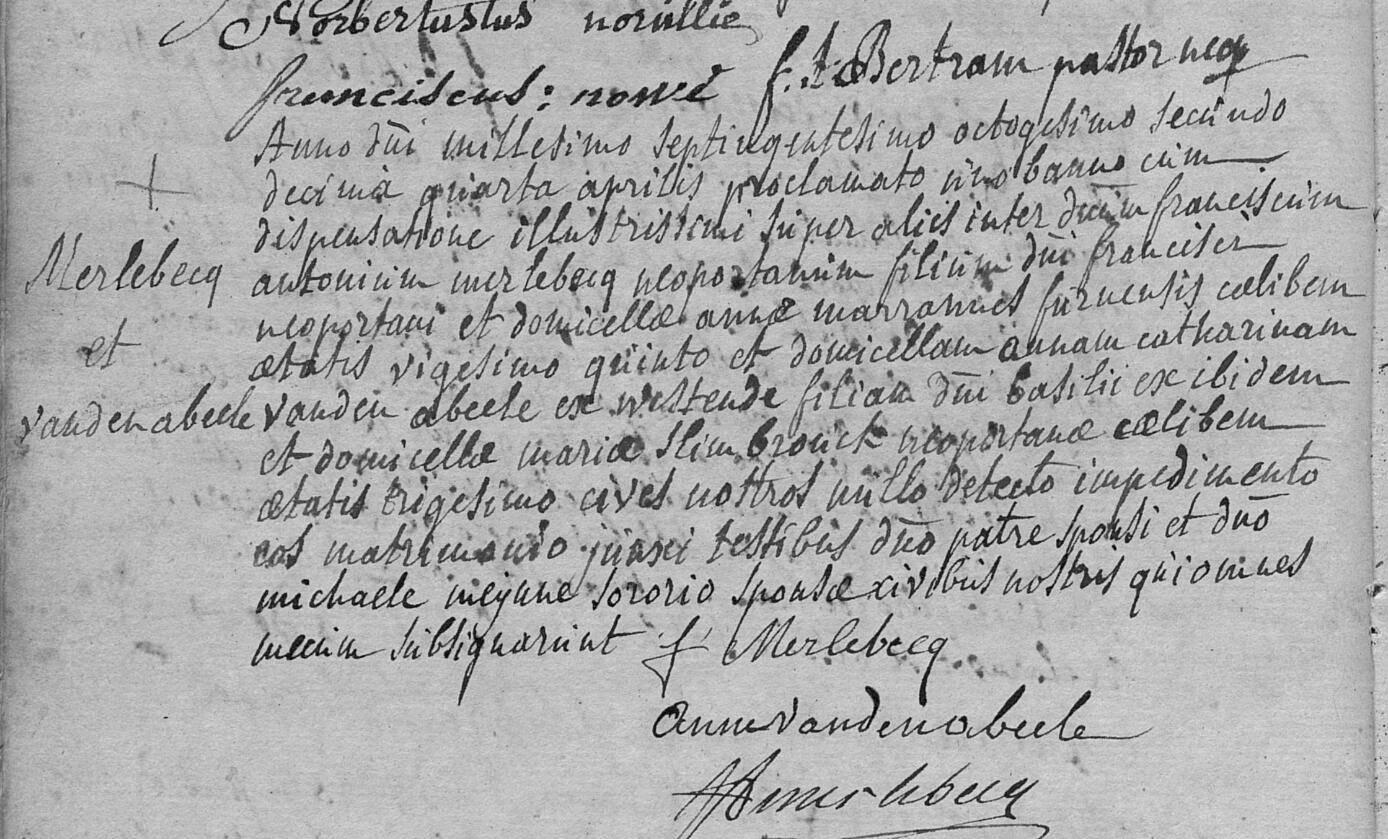 Norbertustus norullie
franciscus: nowé f. A Bertram pastor neop
+
Anno dni millesimo septingentesimo octogesimo secundo
decima quarta aprilis proclamato uno banno cum
dispensatione illustrissimi super aliis inter dnum franciscum
Merlebecq
antonium merlebecq neoportanum filium dni francisci
neoportani et domicellæ annæ marrannes furnensis cælibem
et
ætatis vigesimo quinto et domicellam annam catharinam
vandenabeele
vanden abeele ex westende filiam dni basilii ex ibidem
et domicellæ mariæ slimbrouck neoportanæ cælibem
ætatis trigesimo cives nostros nullo detecto impedimento
eos matrimonio junxi testibus dno patre sponsi et dno
michaele meynne sororio sponsæ civibus nostris qui omnes
mecum subsignarunt f Merlebecq
Anne vandenabeele
merlebecq